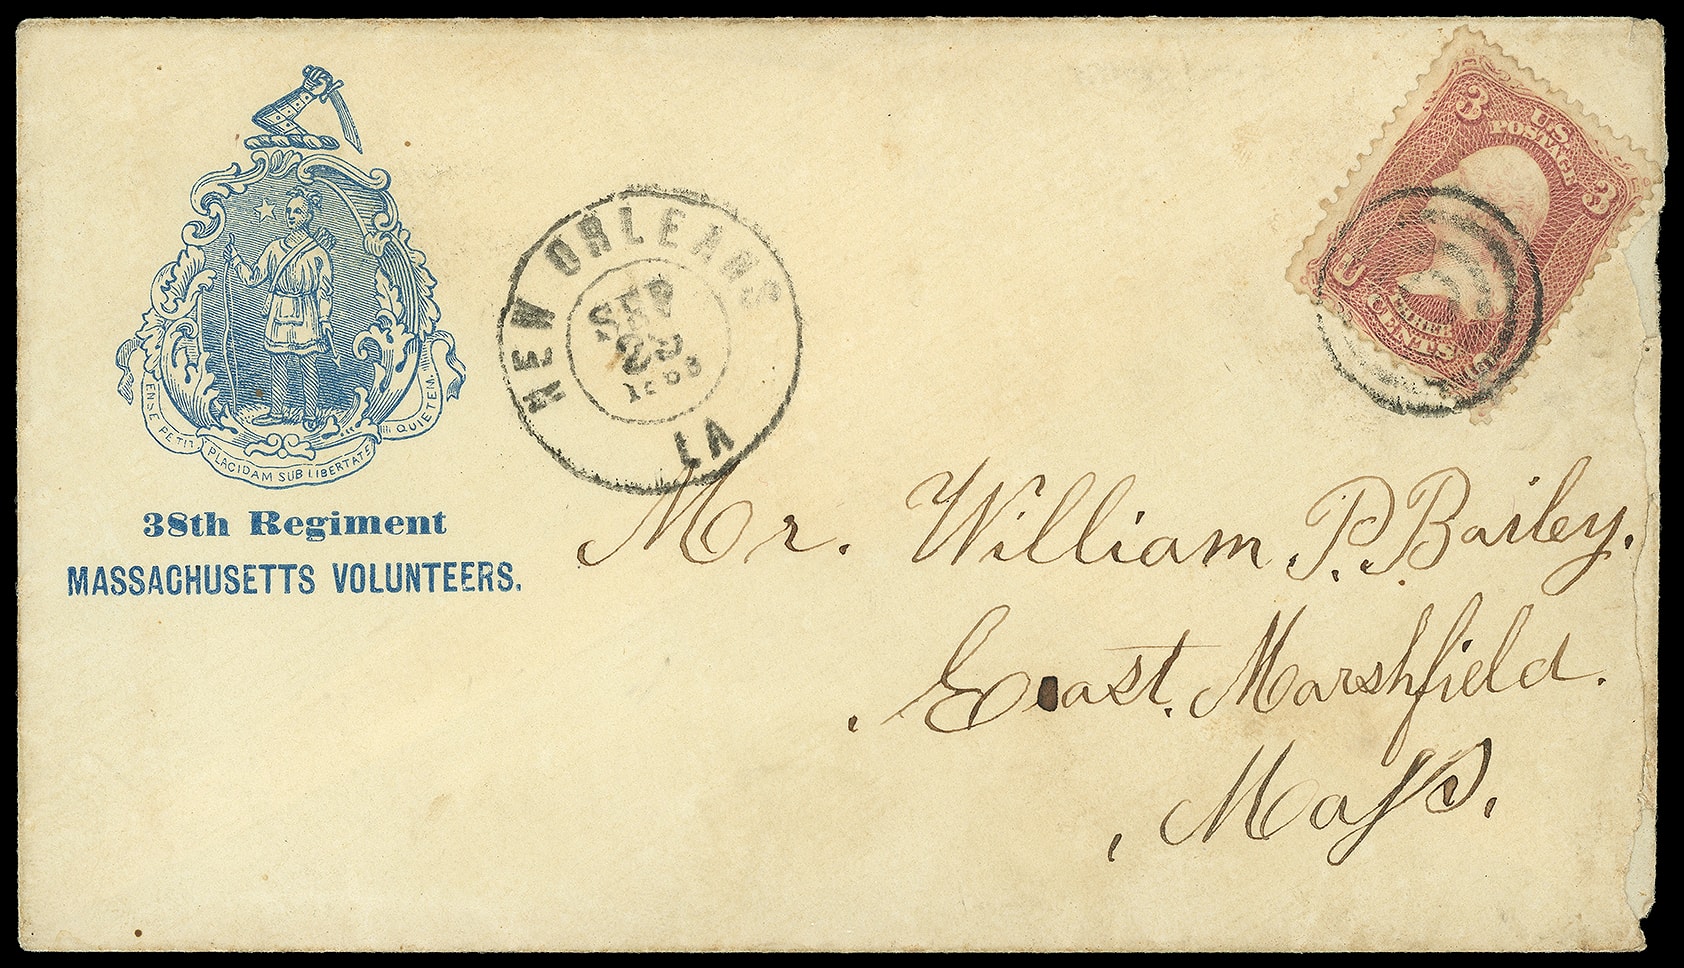 ENSE PETIT PLACIDAM SUB LIBERTATE QUIETEM.
38th Regiment
MASSACHUSETTS VOLUNTEERS.
NEW ORLEANS
SEP
29
1863
LA
3 U.S. POSTAGE 3
U CENTS
Mr. William P. Bailey.
East Marshfield.
Mass.